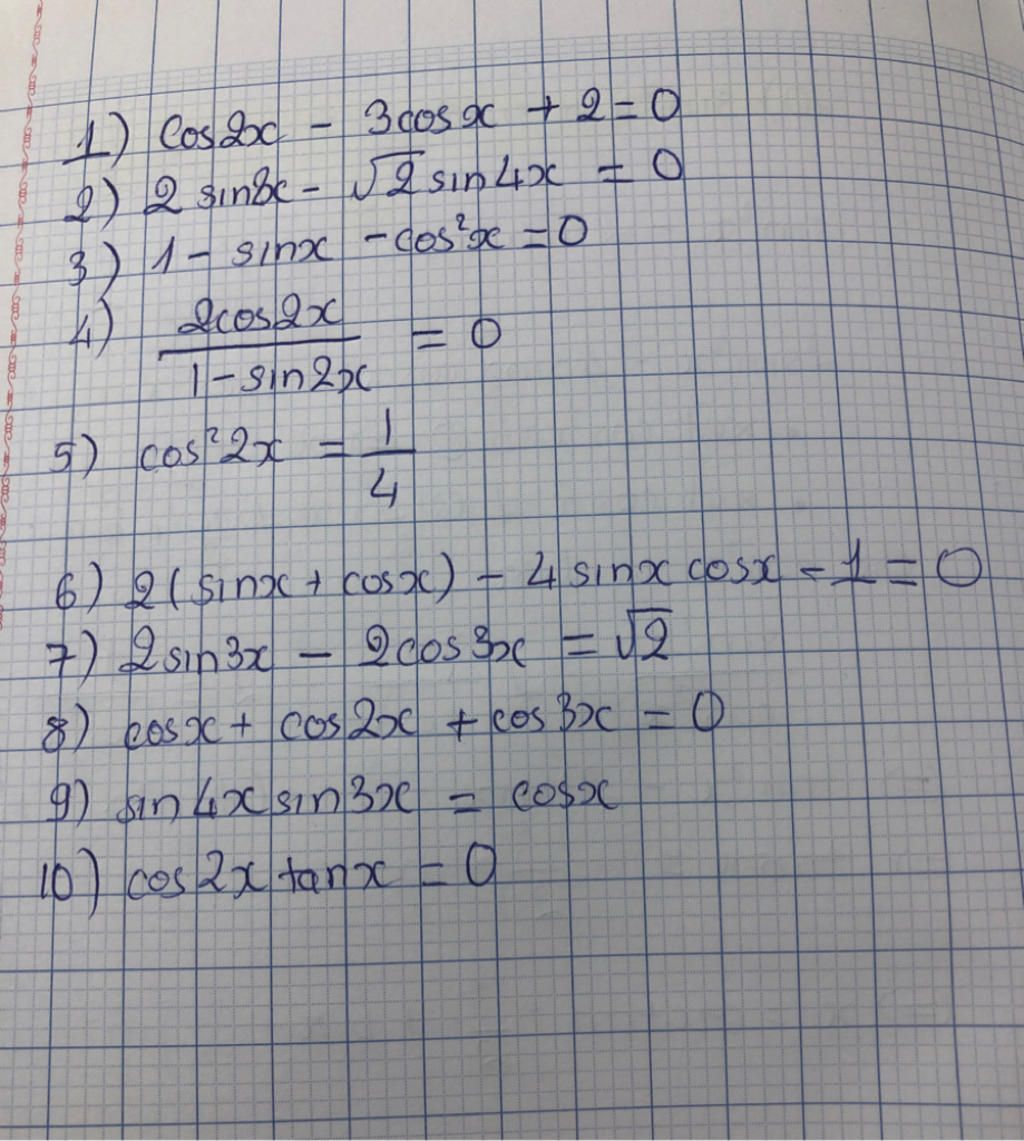 1) cos2x - 3cosx + 2 = 0
2) 2 sin8x - √2 sin4x = 0
3) 1 - sinx - cos²x = 0
4) 2cos2x / 1 - sin2x = 0
5) cos²2x = 1/4
6) 2(sinx + cosx) - 4sinx cosx - 1 = 0
7) 2sin3x - 2cos3x = √2
8) cosx + cos2x + cos3x = 0
9) sin4x sin3x = cosx
10) cos2x tanx = 0